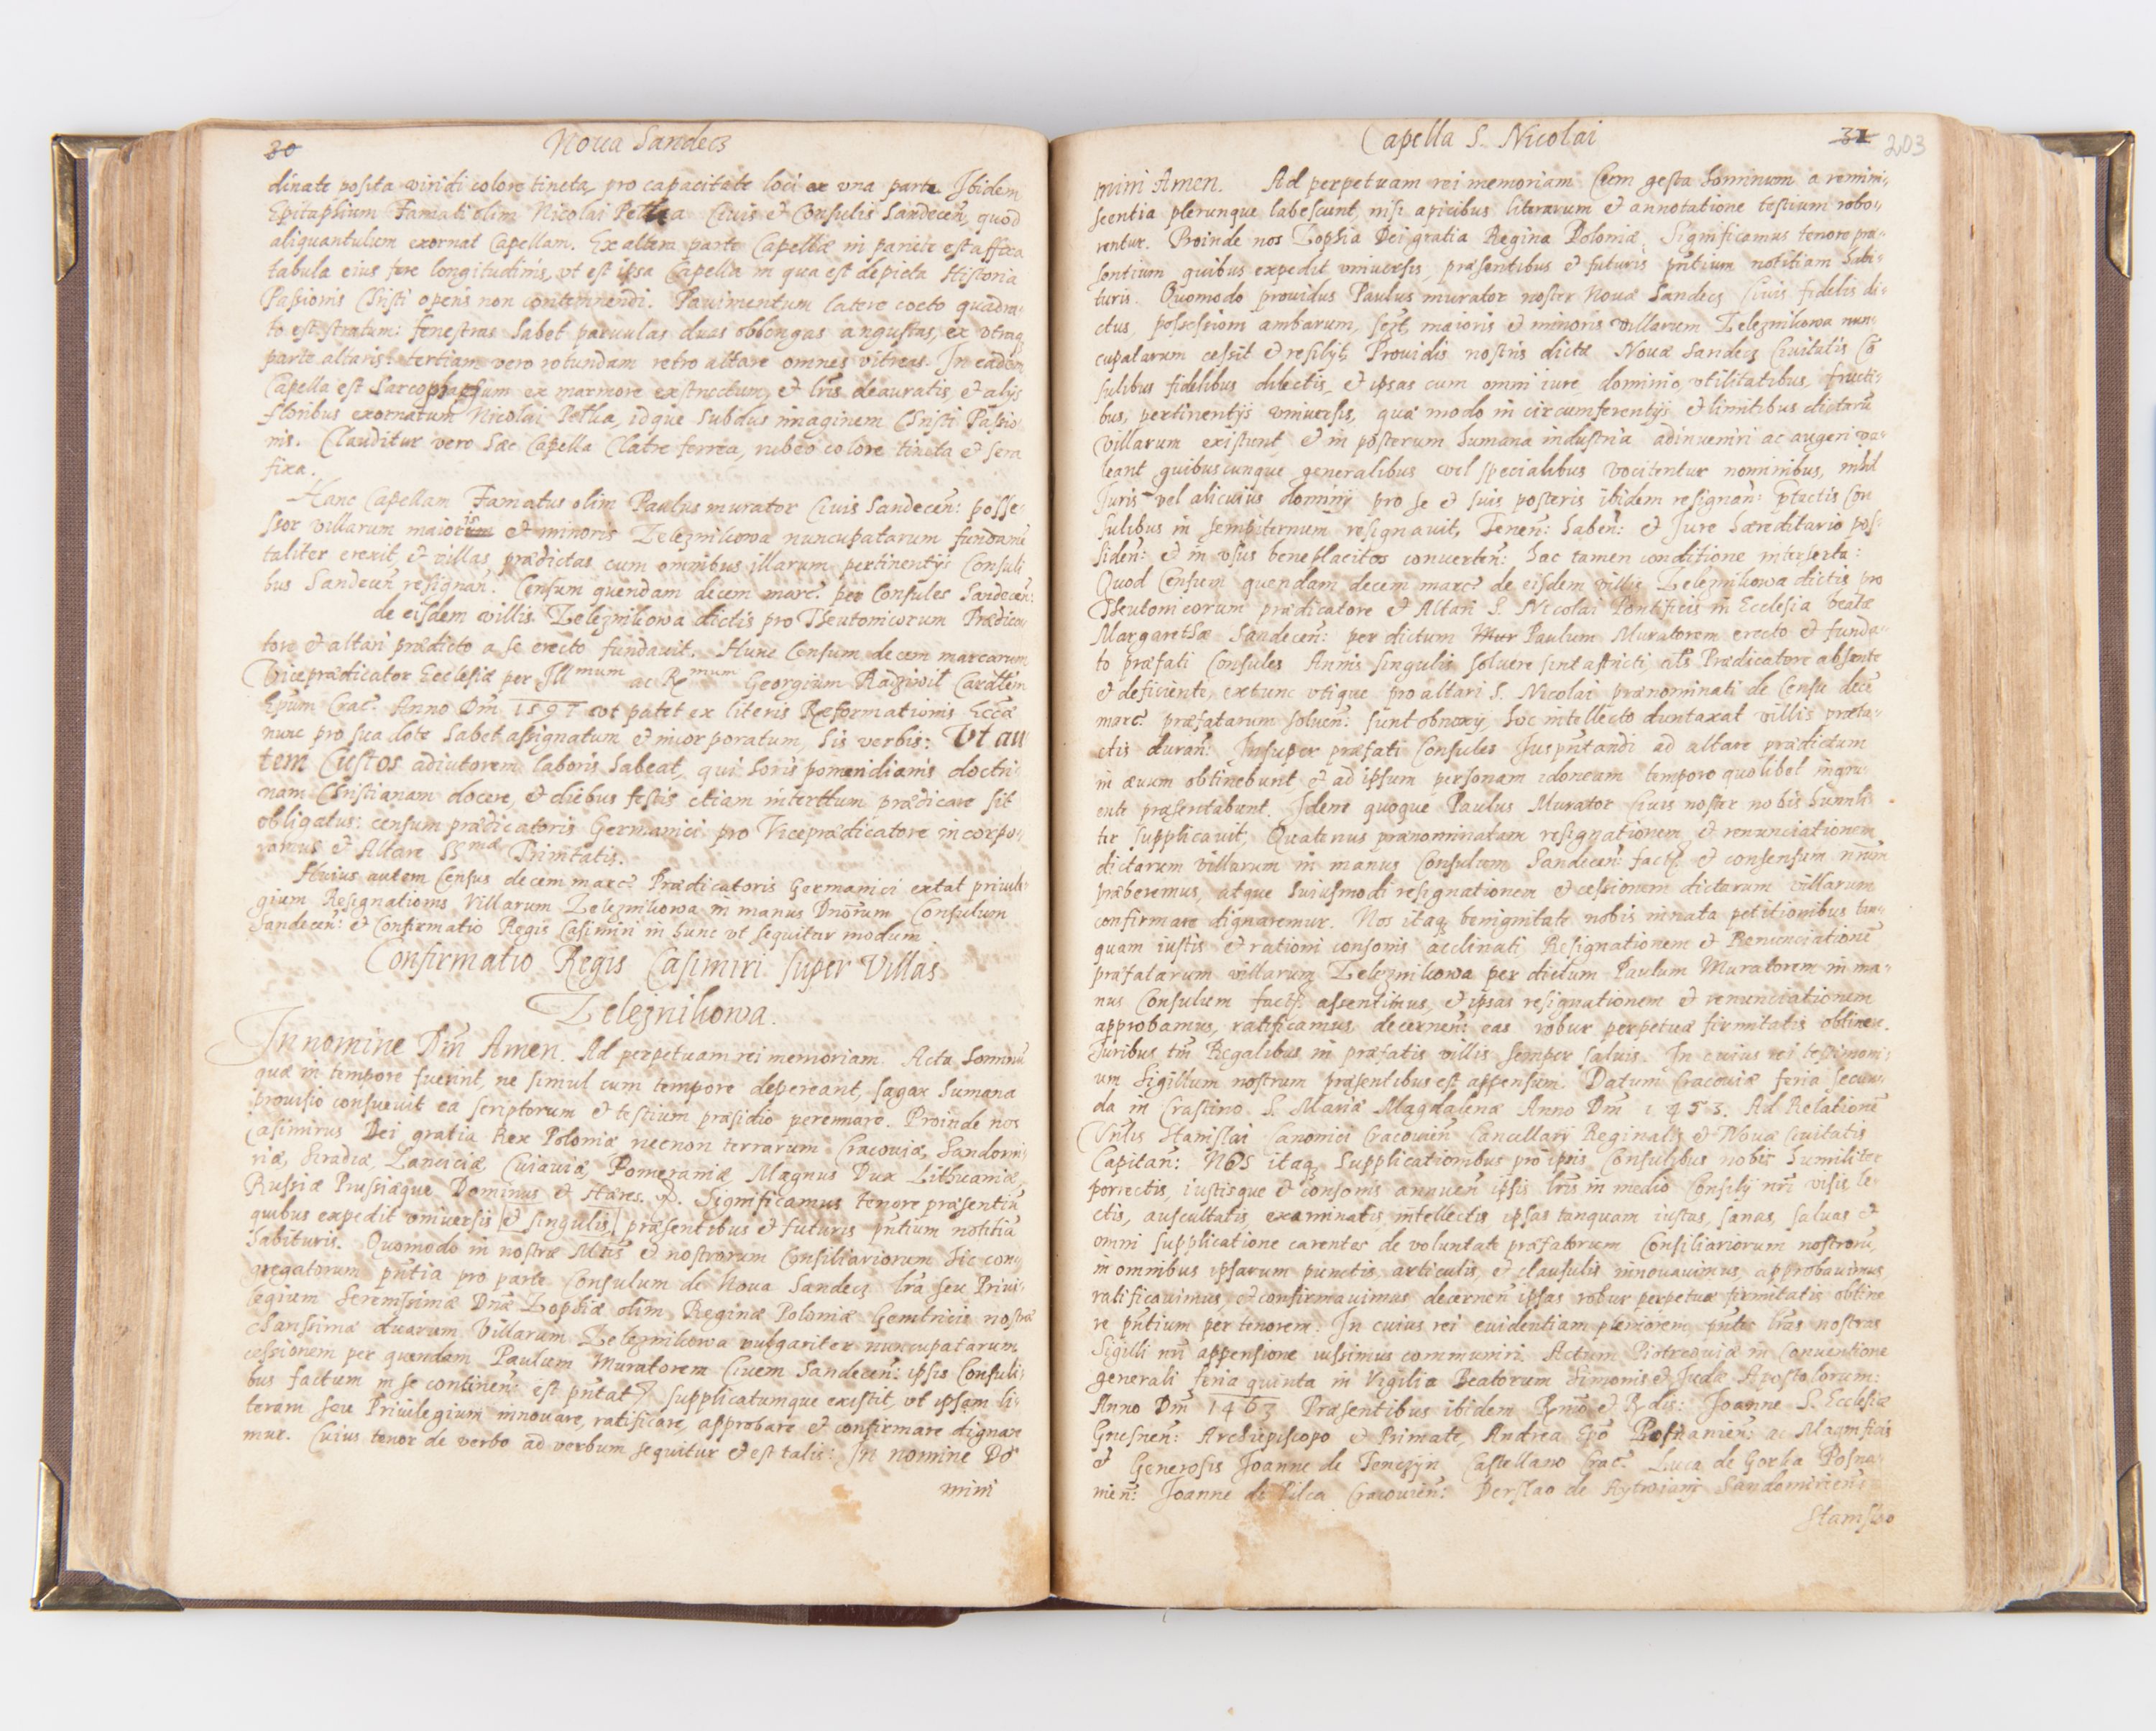 30
Noua Sandecz
dinate posita viridi colore tincta, pro capacitate loci ex vna parte. Ibidem
Epitaphium Famati olim Nicolai Petlka Ciuis et Consulis Sandecen̄, quod
aliquantulum exornat Capellam. Ex altera parte Capellæ in pariete est affixa
tabula eius fere longitudinis, vt est ipsa Capella in qua est depicta Historia
Passionis Christi operis non contemnendi. Pauimentum latere cocto quadra-
to est stratum: fenestras habet paruulas duas oblongas angustas, ex vtraq̃
parte altaris: tertiam vero rotundam retro altare omnes vitreas. In eadem
Capella est Sarcophagum ex marmore exstructum, et lr̃is deauratis, et alijs
floribus exornatum Nicolai Petlka, idque subdus imaginem Christi Passio-
nis. Clauditur vero hæc Capella Clatre ferrea, rubeo colore tincta et sera
fixa.
Hanc Capellam Famatus olim Paulus murator Ciuis Sandecen̄: posse-
ssor villarum maioris et minoris Zeleznikowa nuncupatarum fundame
taliter erexit, et villas prædictas cum omnibus illarum pertinentijs Consuli
bus Sandecen̄ resignan̄. Censum quendam decem marc? per Consules Sandecen̄:
de eisdem villis Zeleznikowa dictis pro Theutonicorum Prædica-
tore et altari prædicto a se erecto fundauit. Hunc Censum decem marcarum
Viceprædicator Ecclesiæ per Illmum ac Rmum Georgium Radziwil Cardlem
Epum Crac? Anno Dm̄ 1597 vt patet ex literis Reformationis Eccæ
nunc pro sua dote habet assignatum et incorporatum, his verbis: Vt au
tem Custos adiutorem laboris habeat, qui horis pomeridianis doctri-
nam Christianam docere, et diebus festis etiam interdum prædicare sit
obligatus: censum prædicatoris Germanici pro Viceprædicatore incorpo-
ramus et Altare SSmæ Trinitatis.
Huius autem Census decem marc? Prædicatoris Germanici extat priuile-
gium Resignationis Villarum Zeleznikowa in manus Dnorum Consulum
Sandecen̄: et Confirmatio Regis Casimiri in hunc vt sequitur modum
Confirmatio Regis Casimiri super Villas
Zeleznikowa.
In nomine Dm̄ Amen. Ad perpetuam rei memoriam. Acta hominū
quæ in tempore fuerint, ne simul cum tempore depereant, sagax humana
prouisio consueuit ea scriptorum et testium præsidio perennare. Proinde nos
Casimirus Dei gratia Rex Poloniæ necnon terrarum Cracouiæ, Sandomi-
riæ, Siradiæ, Lanciciæ, Cuiauiæ, Pomeraniæ, Magnus Dux Lithuaniæ,
Russiæ Prussiæque Dominus et Hæres. Significamus tenore præsentiū
quibus expedit vniuersis [et singulis] præsentibus et futuris pn̄tium notitiā
habituris. Quomodo in nostræ Mtis et nostrorum Consiliariorum hic con-
gregatorum pn̄tia pro parte Consulum de Noua Sandecz lr̃a seu Priui-
legium Serenissimæ Dnæ Zophiæ olim Reginæ Poloniæ Genitricis nostræ
charissimæ duarum Villarum Zeleznikowa vulgariter nuncupatarum
cessionem per quendam Paulum Muratorem Ciuem Sandecen̄: ipsis Consuli-
bus factum in se continen̄: est pn̄tat supplicatumque exstitit, vt ipsam li-
teram seu Priuilegium innouare, ratificare, approbare et confirmare dignare
mur. Cuius tenor de verbo ad verbum sequitur et est talis: In nomine Do
mini
Capella S. Nicolai
31 203
mini Amen. Ad perpetuam rei memoriam Cum gesta hominum a remini-
scentia plerunque labescunt, nisi apicibus literarum et annotatione testium robo-
rentur. Proinde nos Zophia Dei gratia Regina Poloniæ. Significamus tenore præ-
sentium quibus expedit vniuersis, præsentibus et futuris pn̄tium notitiam habi-
turis. Quomodo prouidus Paulus murator noster Nouæ Sandecz Ciuis fidelis di-
ctus, possessioni ambarum, scz̄t, maioris et minoris villarum Zeleznikowa nun-
cupatarum cessit et resilijt, Prouidis nostris dictæ Nouæ Sandecz Ciuitatis Cō
sulibus fidelibus dilectis, et ipsas cum omni iure dominio, vtilitatibus, fructi-
bus, pertinentijs vniuersis, quæ modo in circumferentijs et limitibus dictarū
villarum existunt, et in posterum humana industria adinueniri ac augeri va-
leant quibuscunque generalibus vel specialibus vocitentur nominibus, nihil
Juris vel alicuius dominij pro se et suis posteris ibidem resignan̄: ptactis Con
sulibus in sempiternum resignauit, Tenen̄: haben̄: et Jure hæreditario pos-
siden̄: et in vsus beneplacitos conuerten̄: hac tamen conditione inserta:
Quod Censum quendam decem marc? de eisdem villis Zeleznikowa dictis pro
Theutonicorum prædicatore et Altari S. Nicolai Pontificis in Ecclesia beatæ
Margarethæ Sandecen̄: per dictum Mur Paulum Muratorem erecto et funda-
to præfati Consules Annis singulis soluere sint astricti, als Prædicatore absente
et deficiente, extunc vtique pro altari S. Nicolai prænominati de Censu decē
marc? præfatarum soluen̄: sunt obnoxij, hoc intellecto duntaxat villis præta-
ctis duran̄: Insuper præfati Consules Jus pn̄tandi ad altare prædictum
in æuum obtinebunt et ad ipsum personam idoneam tempore quolibet ingru-
ente præsentabunt. Idem quoque Paulus Murator Ciuis noster nobis humili-
ter supplicauit, Quatenus prænominatam resignationem et renunciationem
dictarum villarum in manus Consulum Sandecen̄: fact? et consensum nr̄um
præberemus, atque huiusmodi resignationem et cessionem dictarum villarum
confirmare dignaremur. Nos itaq̃ benignitate nobis innata petitionibus tan-
quam iustis et rationi consonis acclinati Resignationem et Renunciationē
præfatarum villarum Zeleznikowa per dictum Paulum Muratorem in ma-
nus Consulum fact? assentimus, et ipsas resignationem et renunciationem
approbamus, ratificamus, decernen̄: eas robur perpetuæ firmitatis obtinere.
Juribus tm̄ Regalibus in præfatis villis semper saluis. In cuius rei testimoni-
um Sigillum nostrum præsentibus est appensum. Datum Cracouiæ feria secun-
da in Crastino S. Mariæ Magdalenæ Anno Dm̄ 1453. Ad Relationē
Vn̄lis Stanislai Canonici Cracouien̄ Cancellarij Reginalis et Nouæ Ciuitatis
Capitan̄: Nos itaq̃ Supplicationibus pro ipsis Consulibus nobis humiliter
porrectis, iustisque et consonis annuen̄ ipsis lr̃is in medio Consilij nr̄i visis le-
ctis, auscultatis, examinatis, intellectis ipsas tanquam iustas, sanas, saluas et
omni supplicatione carentes de voluntate præfatorum Consiliariorum nostrorū,
in omnibus ipsarum punctis, articulis, et clausulis innouauimus, approbauimus,
ratificauimus, et confirmauimus decernen̄ ipsas robur perpetuæ firmitatis obtine
re pn̄tium per tenorem. In cuius rei euidentiam pleniorem pn̄tes lr̃as nostras
Sigilli nr̄i appensione iussimus communiri. Actum Piotrcouiæ in Conuentione
generali feria quinta in Vigilia Beatorum Simonis et Judæ Apostolorum:
Anno Dm̄ 1463. Præsentibus ibidem Rmō et Rdis: Joanne S. Ecclesiæ
Gnesnen̄: Archiepiscopo et Primate, Andrea Epō Posnanien̄: ac Magnificis
et Generosis Joanne de Tenczyn Castellano Crac? Luca de Gorka Posna-
nien̄: Joanne de Pilca Cracouien̄: Derslao de Rytwiany Sandomirien̄:
Stanislao